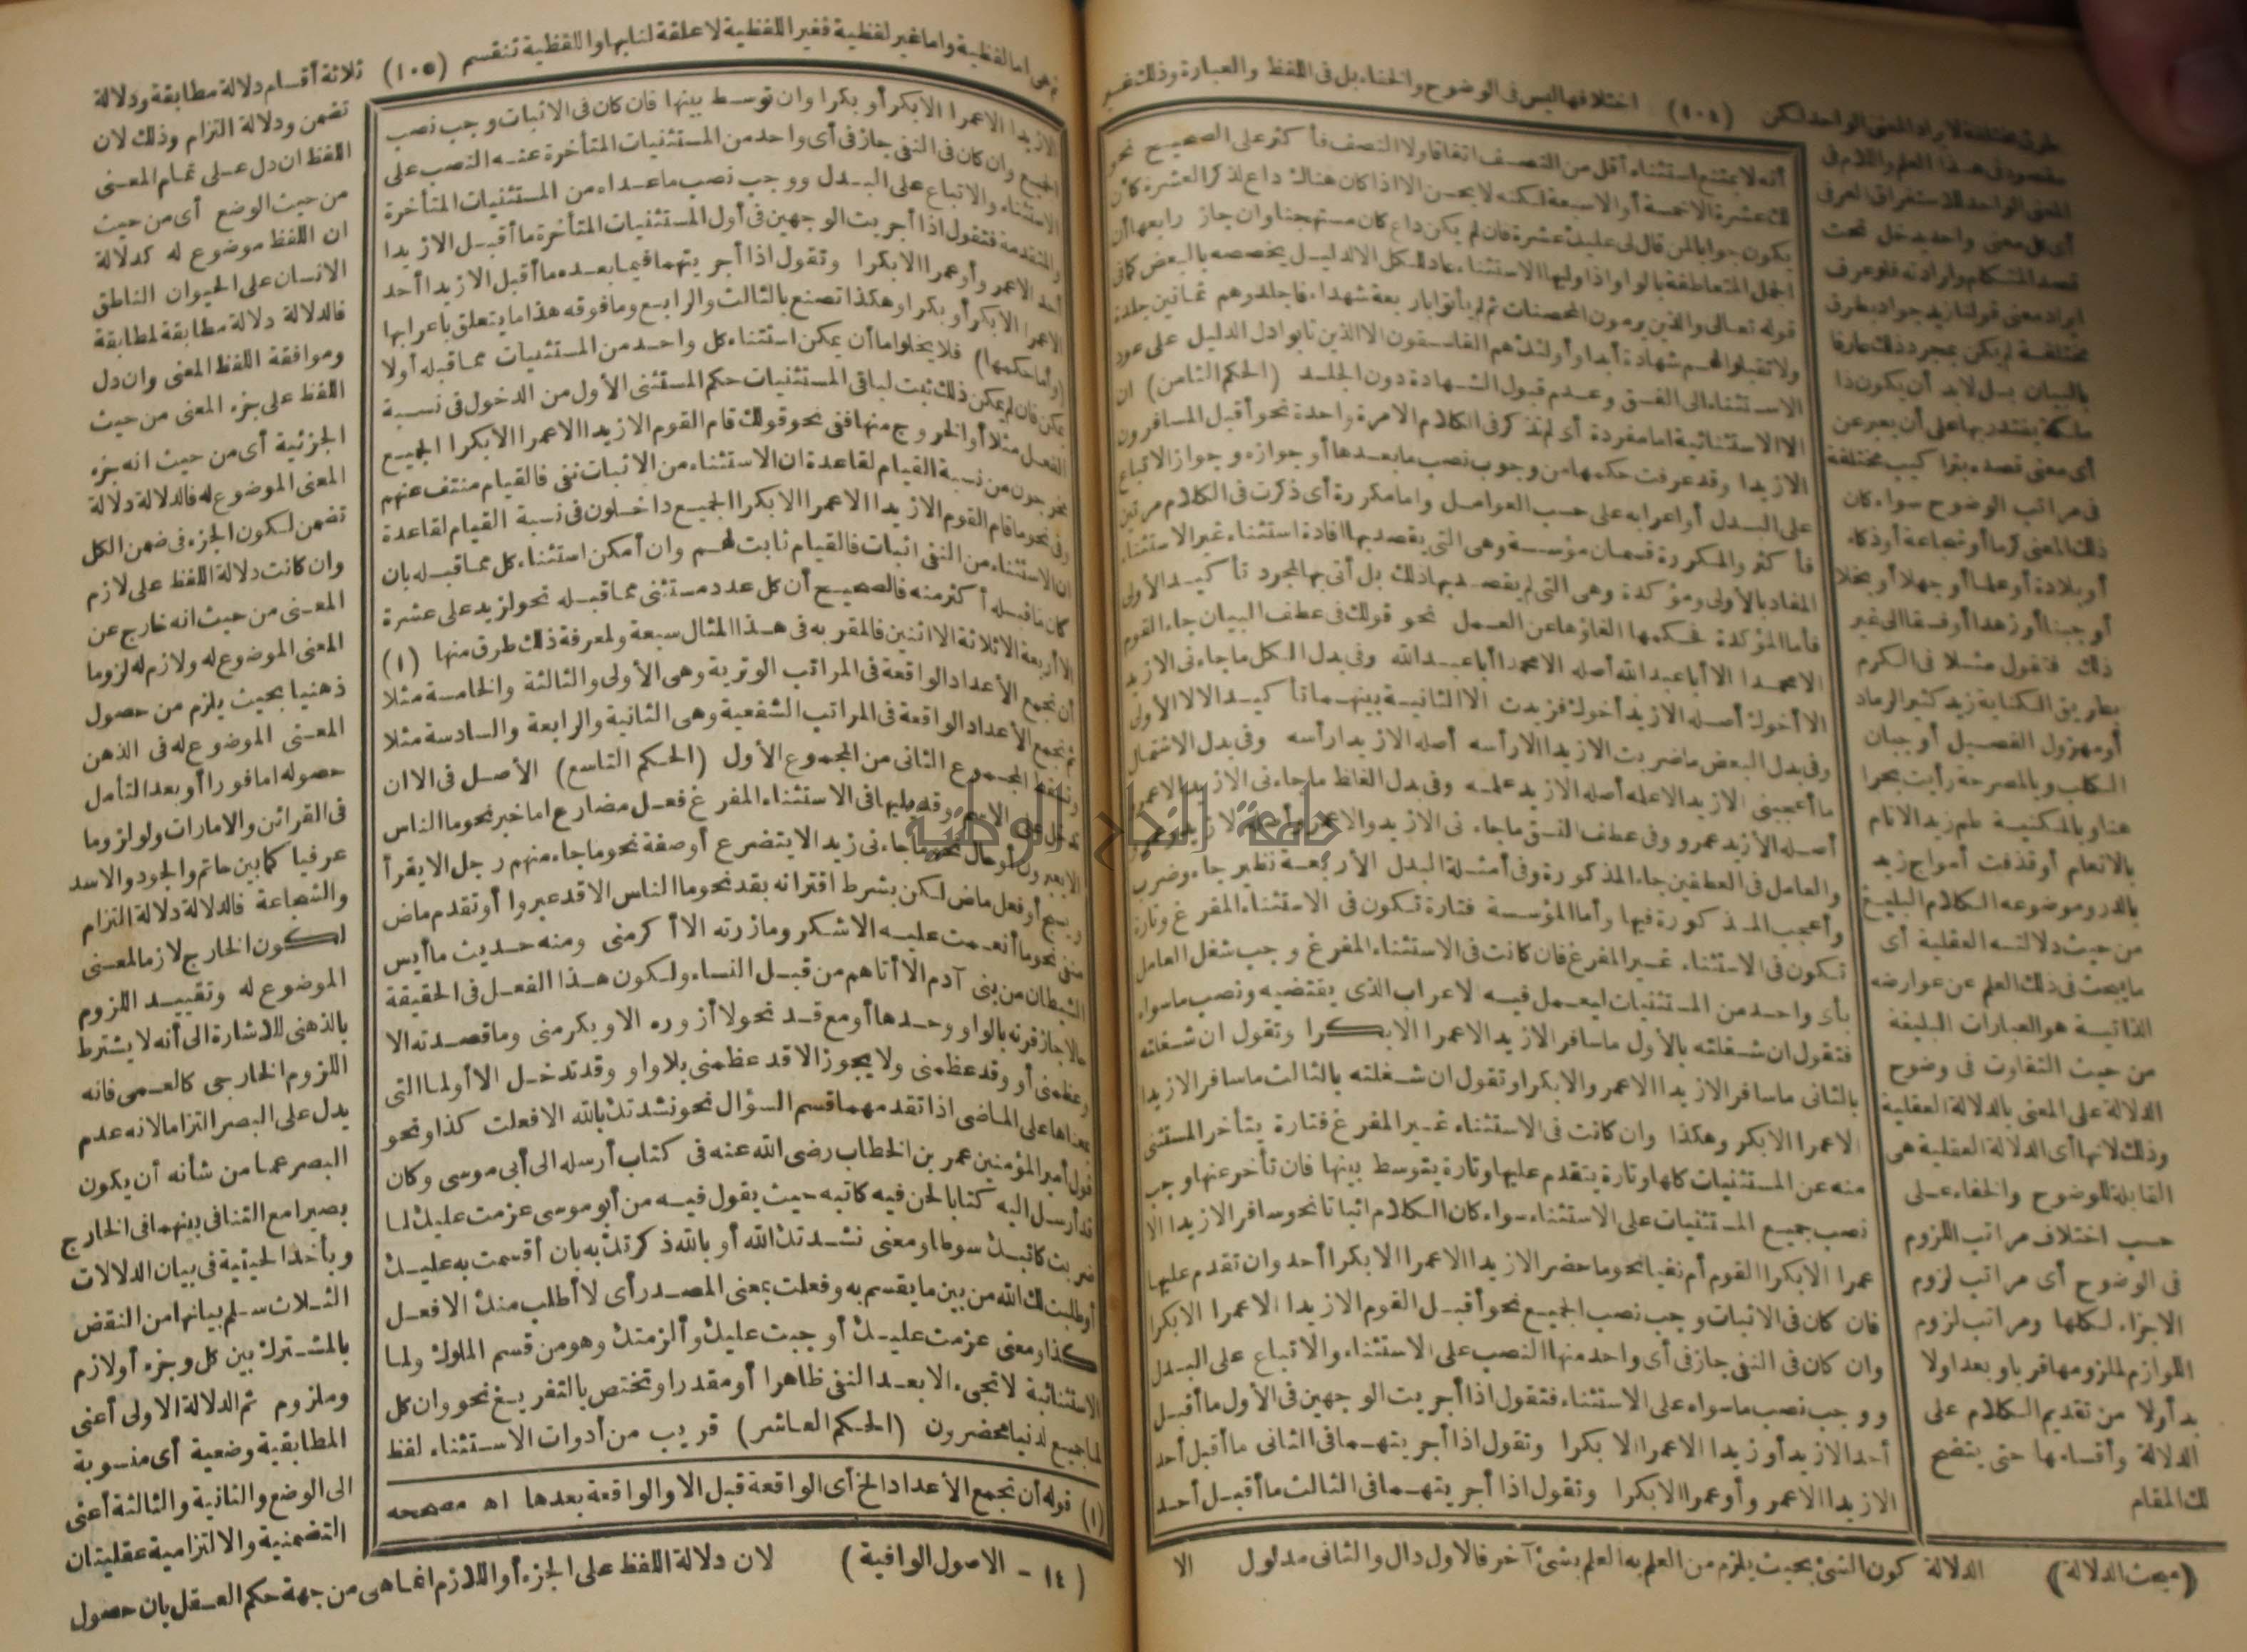 طرق مختلفة لايراد المعنى الواحد لكن (١٠٤) اختلافها ليس فى الوضوح والخفاء بل فى اللفظ والعبارة وذلك غير
مقصود فى هذا العلم واللام فى
المعنى الواحد للاستغراق العرفى
أى كل معنى واحد يدخل تحت
قصد المتكلم وارادته فلو عرف
ايراد معنى قولنا زيد جواد بطرق
مختلفة لم يكن بمجرد ذلك عارفا
بالبيان بل لابد أن يكون ذا
ملكة يقتدر بها على أن يعبر عن
أى معنى قصده بتراكيب مختلفة
فى مراتب الوضوح سواء كان
ذلك المعنى كرما أو شجاعة أو ذكاء
أو بلادة أو علما أو جهلا أو بخلا
أو جبنا أو زهدا أو فسقا الى غير
ذلك فتقول مثلا فى الكرم
بطريق الكناية زيد كثير الرماد
أو مهزول الفصيل أو جبان
الكلب وبالمصرحة رأيت بحرا
هنا وبالمكنية طم زيد الانام
بالانعام أو قذفت أمواج زيد
بالدر وموضوعه الكلام البليغ
من حيث دلالته العقلية أى
ما يبحث فى ذلك العلم عن عوارضه
الذاتية هو العبارات البليغة
من حيث التفاوت فى وضوح
الدلالة على المعنى بالدلالة العقلية
وذلك لانها أى الدلالة العقلية هى
القابلة للوضوح والخفاء على
حسب اختلاف مراتب اللزوم
فى الوضوح أى مراتب لزوم
الاجزاء لكلها ومراتب لزوم
اللوازم لملزومها قربا وبعدا ولا
بد أولا من تقديم الكلام على
الدلالة وأقسامها حتى يتضح
لك المقام
أنه لا يمتنع استثناء أقل من النصف اتفاقا ولا النصف فأكثر على الصحيح نحو
لك عشرة الا خمسة أو الا سبعة لكنه لا يحسن الا اذا كان هناك داع لذكر العشرة كأن
يكون جوابا لمن قال لى عليك عشرة فان لم يكن داع كان مستهجنا وان جاز رابعها أن
الجمل المتعاطفة بالواو اذا وليها الاستثناء عاد للكل الا لدليل يخصصه بالبعض كما فى
قوله تعالى والذين يرمون المحصنات ثم لم يأتوا بأربعة شهداء فاجلدوهم ثمانين جلدة
ولا تقبلوا لهم شهادة أبدا وأولئك هم الفاسقون الا الذين تابوا دل الدليل على عود
الاستثناء الى الفسق وعدم قبول الشهادة دون الجلد (الحكم الثامن) ان
الا الاستثنائية اما مفردة أى لم تذكر فى الكلام الا مرة واحدة نحو أقبل المسافرون
الا زيدا وقد عرفت حكمها من وجوب نصب ما بعدها أو جوازه وجواز الاتباع
على البدل أو اعرابه على حسب العوامل واما مكررة أى ذكرت فى الكلام مرتين
فأكثر والمكررة قسمان مؤسسة وهى التى يقصد بها افادة استثناء غير الاستثناء
المفاد بالأولى ومؤكدة وهى التى لم يقصد بها ذلك بل أتى بها لمجرد تأكيد الأولى
فأما المؤكدة فحكمها الغاؤها عن العمل نحو قولك فى عطف البيان جاء القوم
الا محمدا الا أبا عبد الله أصله الا محمدا أبا عبد الله وفى بدل الكل ما جاءنى الا زيد
الا أخوك أصله الا زيد أخوك فزيدت الا الثانية بينهما تأكيدا لالا الأولى
وفى بدل البعض ما ضربت الا زيدا الا رأسه أصله الا زيدا رأسه وفى بدل الاشتمال
ما أعجبنى الا زيد الا علمه أصله الا زيد علمه وفى بدل الغلط ما جاءنى الا زيد الا عمرو
أصله الا زيد عمرو وفى عطف النسق ما جاءنى الا زيد والا عمرو أصله الا زيد وعمرو
والعامل فى العطفين جاء المذكورة وفى أمثلة البدل الأربعة نظير جاء وضرب
وأعجب المذكورة فيها وأما المؤسسة فتارة تكون فى الاستثناء المفرغ وتارة
تكون فى الاستثناء غير المفرغ فان كانت فى الاستثناء المفرغ وجب شغل العامل
بأى واحد من المستثنيات ليعمل فيه الاعراب الذى يقتضيه ونصب ما سواه
فتقول ان شغلته بالأول ما سافر الا زيد الا عمرا الا بكرا وتقول ان شغلته
بالثانى ما سافر الا زيدا الا عمرو الا بكرا وتقول ان شغلته بالثالث ما سافر الا زيدا
الا عمرا الا بكر وهكذا وان كانت فى الاستثناء غير المفرغ فتارة يتأخر المستثنى
منه عن المستثنيات كلها وتارة يتقدم عليها وتارة يتوسط بينها فان تأخر عنها وجب
نصب جميع المستثنيات على الاستثناء سواء كان الكلام اثباتا نحو سافر الا زيدا الا
عمرا الا بكرا القوم أم نفيا نحو ما حضر الا زيدا الا عمرا الا بكرا أحد وان تقدم عليها
فان كان فى الاثبات وجب نصب الجميع نحو أقبل القوم الا زيدا الا عمرا الا بكرا
وان كان فى النفى جاز فى أى واحد منها النصب على الاستثناء والاتباع على البدل
ووجب نصب ما سواه على الاستثناء فتقول اذا أجريت الوجهين فى الأول ما أقبل
أحد الا زيد أو زيدا الا عمرا الا بكرا وتقول اذا أجريتهما فى الثانى ما أقبل أحد
الا زيدا الا عمرو أو عمرا الا بكرا وتقول اذا أجريتهما فى الثالث ما أقبل أحد
(مبحث الدلالة) الدلالة كون الشئ بحيث يلزم من العلم به العلم بشئ آخر فالاول دال والثانى مدلول الا
هى اما لفظية واما غير لفظية فغير اللفظية لا علقة لنا بها واللفظية تنقسم (١٠٥) ثلاثة أقسام دلالة مطابقة ودلالة
الا زيدا الا عمرا الا بكر أو بكرا وان توسط بينها فان كان فى الاثبات وجب نصب
الجميع وان كان فى النفى جاز فى أى واحد من المستثنيات المتأخرة عنه النصب على
الاستثناء والاتباع على البدل ووجب نصب ما عداه من المستثنيات المتأخرة
والمتقدمة فتقول اذا أجريت الوجهين فى أول المستثنيات المتأخرة ما أقبل الا زيدا
أحد الا عمرو أو عمرا الا بكرا وتقول اذا أجريتهما فيما بعده ما أقبل الا زيدا أحد
الا عمرا الا بكر أو بكرا وهكذا تصنع بالثالث والرابع وما فوقه هذا ما يتعلق باعرابها
(وأما حكمها) فلا يخلو اما أن يمكن استثناء كل واحد من المستثنيات مما قبله أولا
يمكن فان لم يمكن ذلك ثبت لباقى المستثنيات حكم المستثنى الأول من الدخول فى نسبة
الفعل مثلا أو الخروج منها ففى نحو قولك قام القوم الا زيدا الا عمرا الا بكرا الجميع
مخرجون من نسبة القيام لقاعدة ان الاستثناء من الاثبات نفى فالقيام منتف عنهم
وفى نحو ما قام القوم الا زيدا الا عمرا الا بكرا الجميع داخلون فى نسبة القيام لقاعدة
ان الاستثناء من النفى اثبات فالقيام ثابت لهم وان أمكن استثناء كل مما قبله بان
كان ما قبله أكثر منه فالصحيح أن كل عدد مستثنى مما قبله نحو لزيد على عشرة
الا أربعة الا ثلاثة الا اثنين فالمقر به فى هذا المثال سبعة ولمعرفة ذلك طرق منها (١)
أن تجمع الأعداد الواقعة فى المراتب الوترية وهى الأولى والثالثة والخامسة مثلا
ثم تجمع الأعداد الواقعة فى المراتب الشفعية وهى الثانية والرابعة والسادسة مثلا
وتسقط المجموع الثانى من المجموع الأول (الحكم التاسع) الأصل فى الا ان
تدخل على الاسم وقد يليها فى الاستثناء المفرغ فعل مضارع اما خبر نحو ما الناس
الا يعبرون أو حال نحو ما جاءنى زيد الا يتضرع أو صفة نحو ما جاء منهم رجل الا يقرأ
ويسبح أو فعل ماض لكن بشرط اقترانه بقد نحو ما الناس الا قد عبروا أو تقدم ماض
منفى نحو ما أنعمت عليه الا شكر وما زرته الا أكرمنى ومنه حديث ما أيس
الشيطان من بنى آدم الا أتاهم من قبل النساء ولكون هذا الفعل فى الحقيقة
حالا جاز قرنه بالواو وحدها أو مع قد نحو لا أزوره الا ويكرمنى وما قصدته الا
وعظمنى أو وقد عظمنى ولا يجوز الا قد عظمنى بلا واو وقد تدخل الا أو لما التى
بمعناها على الماضى اذا تقدمهما قسم السؤال نحو نشدتك بالله الا فعلت كذا ونحو
قول أمير المؤمنين عمر بن الخطاب رضى الله عنه فى كتاب أرسله الى أبى موسى وكان
قد أرسل اليه كتابا لحن فيه كاتبه حيث يقول فيه من أبو موسى عزمت عليك لما
ضربت كاتبك سوطا ومعنى نشدتك الله أو بالله ذكرتك به بان أقسمت به عليك
أو طلبت لك الله من بين ما يقسم به وفعلت بمعنى المصدر أى لا أطلب منك الا فعل
كذا ومعنى عزمت عليك أوجبت عليك وألزمتك وهو من قسم الملوك ولما
الاستثنائية لا تجىء الا بعد النفى ظاهرا أو مقدرا وتختص بالتفريغ نحو وان كل
لما جميع لدينا محضرون (الحكم العاشر) قريب من أدوات الاستثناء لفظ
(١) قوله أن تجمع الأعداد الخ أى الواقعة قبل الا والواقعة بعدها اه مصححه
تضمن ودلالة التزام وذلك لان
اللفظ ان دل على تمام المعنى
من حيث الوضع أى من حيث
ان اللفظ موضوع له كدلالة
الانسان على الحيوان الناطق
فالدلالة دلالة مطابقة لمطابقة
وموافقة اللفظ المعنى وان دل
اللفظ على جزء المعنى من حيث
الجزئية أى من حيث انه جزء
المعنى الموضوع له فالدلالة دلالة
تضمن لكون الجزء فى ضمن الكل
وان كانت دلالة اللفظ على لازم
المعنى من حيث انه خارج عن
المعنى الموضوع له ولازم له لزوما
ذهنيا بحيث يلزم من حصول
المعنى الموضوع له فى الذهن
حصوله اما فورا أو بعد التأمل
فى القرائن والامارات ولو لزوما
عرفيا كما بين حاتم والجود والاسد
والشجاعة فالدلالة دلالة التزام
لكون الخارج لازما لمعنى
الموضوع له وتقييد اللزوم
بالذهنى للاشارة الى أنه لا يشترط
اللزوم الخارجى كالعمى فانه
يدل على البصر التزاما لانه عدم
البصر عما من شأنه أن يكون
بصيرا مع التنافى بينهما فى الخارج
وبأخذ الحيثية فى بيان الدلالات
الثلاث سلم بيانها من النقض
بالمشترك بين كل وجزء أو لازم
وملزوم ثم الدلالة الاولى أعنى
المطابقية وضعية أى منسوبة
الى الوضع والثانية والثالثة أعنى
التضمنية والالتزامية عقليتان
لان دلالة اللفظ على الجزء أو اللازم انما هى من جهة حكم العقل بان حصول
(١٤ - الاصول الوافية)
جامعة النجاح الوطنية